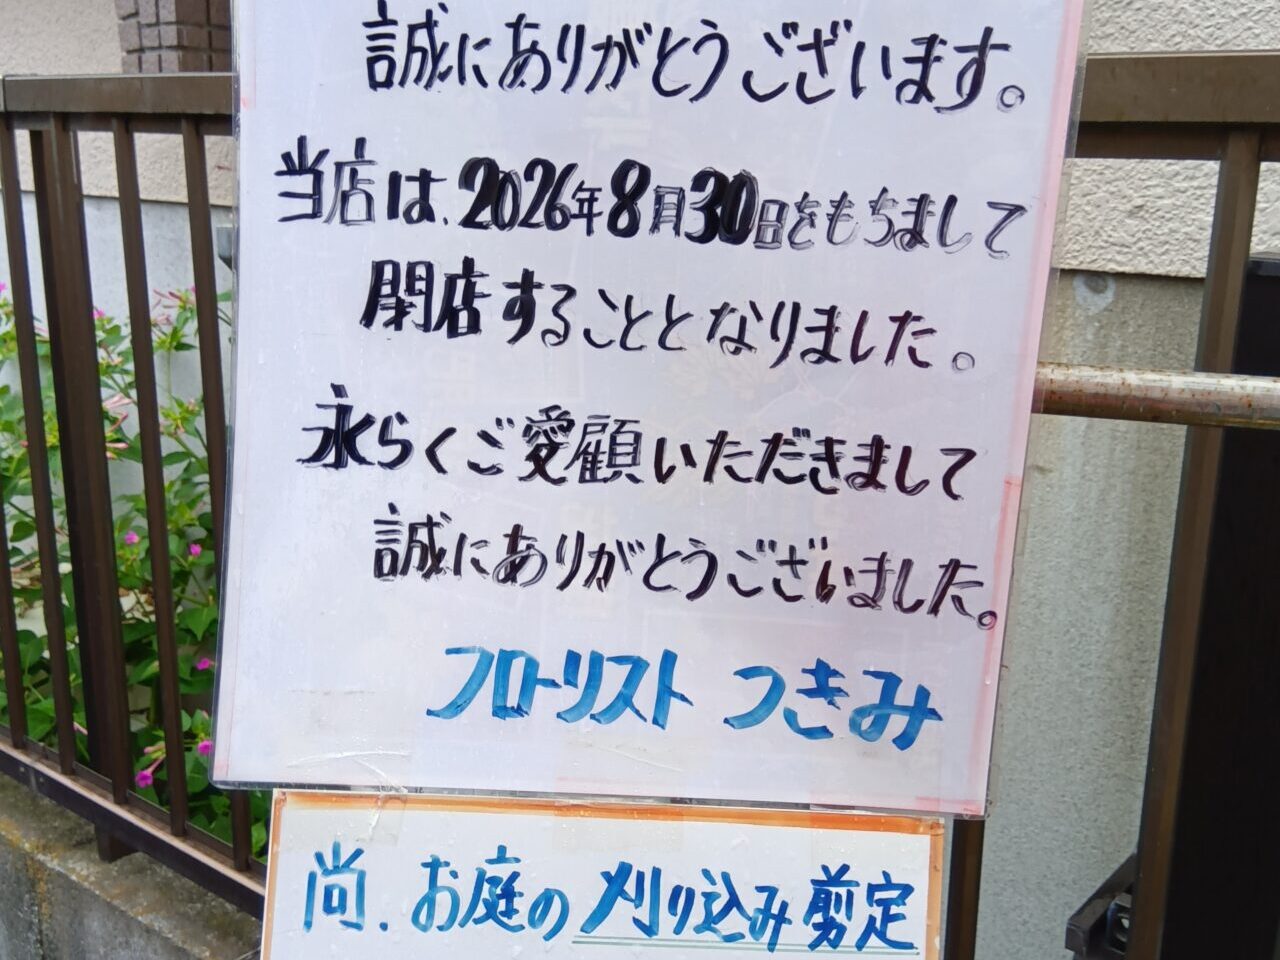 誠にありがとうございます。
当店は、2026年8月30日をもちまして
閉店することとなりました。
永らくご愛顧いただきまして
誠にありがとうございました。
フローリスト つきみ
尚、お庭の刈り込み剪定